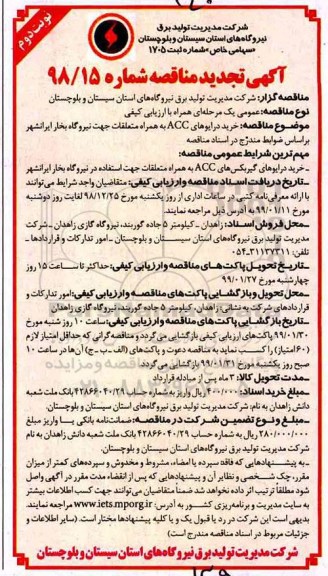 نوبت دوم
شرکت مدیریت تولید برق
نیروگاه‌های استان سیستان و بلوچستان
«سهامی خاص» شماره ثبت ۱۷۰۵
آگهی تجدید مناقصه شماره ۹۸/۱۵
مناقصه گزار: شرکت مدیریت تولید برق نیروگاه‌های استان سیستان و بلوچستان
نوع مناقصه: عمومی یک مرحله‌ای همراه با ارزیابی کیفی
موضوع مناقصه: خرید درایوهای ACC به همراه متعلقات جهت نیروگاه بخار ایرانشهر
براساس ضوابط مندرج در اسناد مناقصه
مهم‌ترین شرایط عمومی مناقصه:
ـ خرید درایوهای گیربکس‌های ACC به همراه متعلقات جهت استفاده در نیروگاه بخار ایرانشهر
ـ تاریخ دریافت اسناد مناقصه و ارزیابی کیفی: متقاضیان واجد شرایط می‌توانند
با ارائه معرفی‌نامه کتبی در ساعات اداری از روز یکشنبه مورخ ۹۸/۱۲/۲۵ لغایت روز دوشنبه
مورخ ۹۹/۰۱/۱۱ به آدرس ذیل مراجعه نمایند.
ـ محل فروش اسناد: زاهدان ـ کیلومتر ۵ جاده گوربند، نیروگاه گازی زاهدان ـ شرکت
مدیریت تولید برق نیروگاه‌های استان سیستان و بلوچستان ـ امور تدارکات و قراردادها ـ
تلفن: ۳۱۱۳۷۳۱۱-۰۵۴
ـ تاریخ تحویل پاکت‌های مناقصه و ارزیابی کیفی: حداکثر تا ساعت ۱۵ روز
چهارشنبه مورخ ۹۹/۰۱/۲۷
ـ محل تحویل و بازگشایی پاکت‌های مناقصه و ارزیابی کیفی: امور تدارکات و
قراردادهای شرکت به نشانی زاهدان، کیلومتر ۵ جاده گوربند، نیروگاه گازی زاهدان
ـ تاریخ بازگشایی پاکت‌های مناقصه و ارزیابی کیفی: ساعت ۱۰ روز شنبه مورخ
۹۹/۰۱/۳۰ پاکت‌های ارزیابی کیفی بازگشایی می‌گردد و مناقصه‌گرانی که حداقل امتیاز لازم
(۶۰ امتیاز) را کسب نماید به مناقصه دعوت و پاکت‌های (الف ـ ب ـ ج) آن‌ها در ساعت ۱۰
صبح روز یکشنبه مورخ ۹۹/۰۱/۳۱ بازگشایی می‌گردد
ـ مدت تحویل کالا: ۳ ماه پس از مبادله قرارداد
ـ مبلغ خرید اسناد: ۴۰۰/۰۰۰ ریال واریز به شماره حساب ۴۲۸۶۶۰۴۰/۲۹ بانک ملت شعبه
دانش زاهدان به نام: شرکت مدیریت تولید برق نیروگاه‌های استان سیستان و بلوچستان.
ـ مبلغ و نوع تضمین شرکت در مناقصه: ضمانت‌نامه بانکی یا واریز مبلغ
۲۸۰/۰۰۰/۰۰۰ ریال به شماره حساب ۴۲۸۶۶۰۴۰/۲۹ بانک ملت شعبه دانش زاهدان به نام
شرکت مدیریت تولید برق نیروگاه‌های استان سیستان و بلوچستان.
ـ به پیشنهادهایی که فاقد سپرده یا امضاء، مشروط و مخدوش و سپرده‌های کمتر از میزان
مقرر، چک شخصی و نظایر آن و پیشنهادهایی که پس از انقضاء مدت مقرر در آگهی واصل
شود مطلقاً ترتیب اثر داده نخواهد شد ضمناً متقاضیان می‌توانند جهت کسب اطلاعات بیشتر
به سایت مدیریت و برنامه‌ریزی کشور به آدرس: www.iets.mporg.ir مراجعه نمایند.
بدیهی است این شرکت در رد یا قبول یک و یا کلیه پیشنهادها مختار است. (سایر اطلاعات و
جزئیات مربوط در اسناد مناقصه مندرج است)
شرکت مدیریت تولید برق نیروگاه‌های استان سیستان و بلوچستان